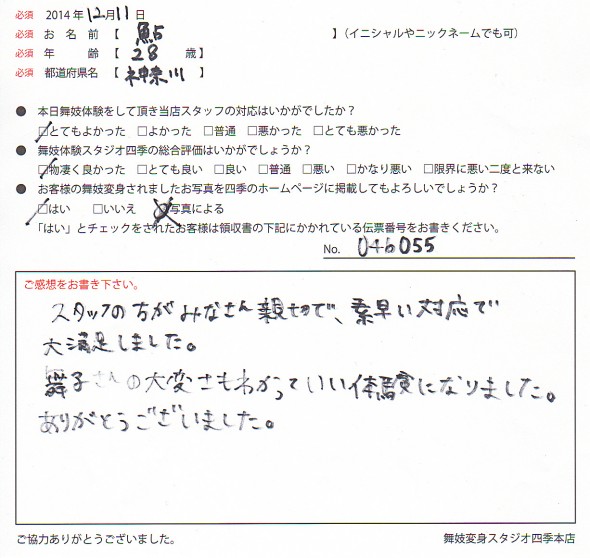 必須 2014年12月11日
必須 お名前【 鮎 】(イニシャルやニックネームでも可)
必須 年齢【 28 歳】
必須 都道府県名【 神奈川 】
● 本日舞妓体験をして頂き当店スタッフの対応はいかがでしたか？
□とてもよかった □よかった □普通 □悪かった □とても悪かった
● 舞妓体験スタジオ四季の総合評価はいかがでしょうか？
□物凄く良かった □とても良い □良い □普通 □悪い □かなり悪い □限界に悪い二度と来ない
● お客様の舞妓変身されましたお写真を四季のホームページに掲載してもよろしいでしょうか？
□はい □いいえ □写真による
「はい」とチェックをされたお客様は領収書の下記にかかれている伝票番号をお書きください。
No. 046055
ご感想をお書き下さい。
スタッフの方がみなさん親切で、素早い対応で
大満足しました。
舞子さんの大変さもわかっていい体験になりました。
ありがとうございました。
ご協力ありがとうございました。
舞妓変身スタジオ四季本店